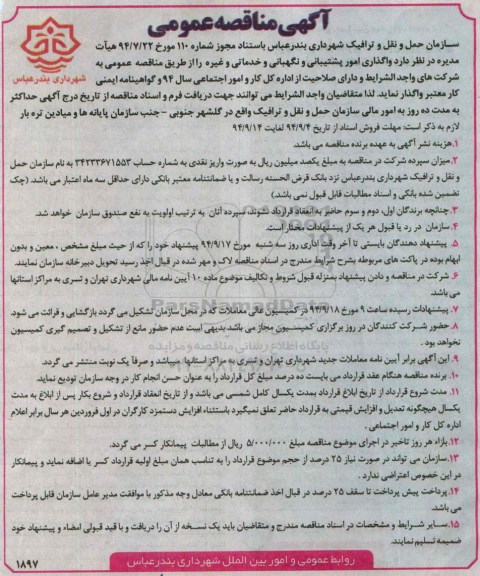 آگهی مناقصه عمومی
شهرداری بندرعباس
سازمان حمل و نقل و ترافیک شهرداری بندرعباس باستناد مجوز شماره ۱۱۰ مورخ ۹۴/۷/۲۲ هیأت
مدیره در نظر دارد واگذاری امور پشتیبانی و نگهبانی و خدماتی و غیره را از طریق مناقصه عمومی به
شرکت های واجد الشرایط و دارای صلاحیت از اداره کل کار و امور اجتماعی سال ۹۴ و گواهینامه ایمنی
کار معتبر واگذار نماید. لذا متقاضیان واجد الشرایط می توانند جهت دریافت فرم و اسناد مناقصه از تاریخ درج آگهی حداکثر
به مدت ده روز به امور مالی سازمان حمل و نقل و ترافیک واقع در گلشهر جنوبی - جنب سازمان پایانه ها و میادین تره بار
لازم به ذکر است: مهلت فروش اسناد از تاریخ ۹۴/۹/۴ لغایت ۹۴/۹/۱۴
۱. هزینه نشر آگهی به عهده برنده مناقصه می باشد.
۲. میزان سپرده شرکت در مناقصه به مبلغ یکصد میلیون ریال به صورت واریز نقدی به شماره حساب ۳۴۲۳۳۶۷۱۵۵۳ به نام سازمان حمل
و نقل و ترافیک شهرداری بندرعباس نزد بانک قرض الحسنه رسالت و یا ضمانتنامه معتبر بانکی دارای حداقل سه ماه اعتبار می باشد. (چک
تضمین شده بانکی و اسناد مطالبات قابل قبول نمی باشد.)
۳. چنانچه برندگان اول، دوم و سوم حاضر به انعقاد قرارداد نشوند، سپرده آنان به ترتیب اولویت به نفع صندوق سازمان خواهد شد.
۴. سازمان در رد یا قبول هر یک از پیشنهادات مختار است.
۵. پیشنهاد دهندگان بایستی تا آخر وقت اداری روز سه شنبه مورخ ۹۴/۹/۱۷ پیشنهاد خود را که از حیث مبلغ مشخص ، معین و بدون
ابهام بوده در پاکت های مربوطه بشرح شرایط مندرج در اسناد مناقصه لاک و مهر شده در قبال اخذ رسید تحویل دبیرخانه سازمان نمایند.
۶. شرکت در مناقصه و دادن پیشنهاد بمنزله قبول شروط و تکالیف موضوع ماده ۱۰ آیین نامه مالی شهرداری تهران و تسری به مراکز استانها
می باشد.
۷. پیشنهادات رسیده ساعت ۹ مورخ ۹۴/۹/۱۸ در کمیسیون عالی معاملات که در محل سازمان تشکیل می گردد بازگشایی و قرائت می شود.
۸. حضور شرکت کنندگان در روز برگزاری کمیسیون مجاز می باشد بدیهی است عدم حضور مانع از تشکیل و تصمیم گیری کمیسیون
نخواهد بود.
۹. این آگهی برابر آیین نامه معاملات جدید شهرداری تهران و تسری به مراکز استانها میباشد و صرفاً یک نوبت منتشر می گردد.
۱۰. برنده مناقصه هنگام عقد قرارداد می بایست ده درصد مبلغ کل قرارداد را به عنوان حسن انجام کار در وجه سازمان تودیع نماید.
۱۱. مدت شروع قرارداد از تاریخ ابلاغ قرارداد بمدت یکسال کامل شمسی می باشد و از تاریخ انعقاد قرارداد و شروع بکار پس از ابلاغ به مدت
یکسال هیچگونه تعدیل و افزایش قیمتی به قرارداد حاضر تعلق نمیگیرد باستثناء افزایش دستمزد کارگران در اول فروردین هر سال برابر اعلام
اداره کل کار و امور اجتماعی.
۱۲. بازاء هر روز تاخیر در اجرای موضوع مناقصه مبلغ ۵/۰۰۰/۰۰۰ ریال از مطالبات پیمانکار کسر می گردد.
۱۳. سازمان می تواند در صورت نیاز ۲۵ درصد از حجم موضوع قرارداد را به تناسب همان مبلغ اولیه قرارداد کسر یا اضافه نماید و پیمانکار
در این خصوص اعتراضی ندارد.
۱۴. پرداخت پیش پرداخت تا سقف ۲۵ درصد در قبال اخذ ضمانتنامه بانکی معادل وجه مذکور با موافقت مدیر عامل سازمان قابل پرداخت
می باشد.
۱۵. سایر شرایط و مشخصات در اسناد مناقصه مندرج و متقاضیان باید یک نسخه از آن را دریافت و با قید قبولی امضاء و پیشنهاد خود
ضمیمه تسلیم نمایند.
روابط عمومی و امور بین الملل شهرداری بندرعباس
۱۸۹۷
ParsNamadData
پایگاه اطلاع رسانی مناقصه و مزایده